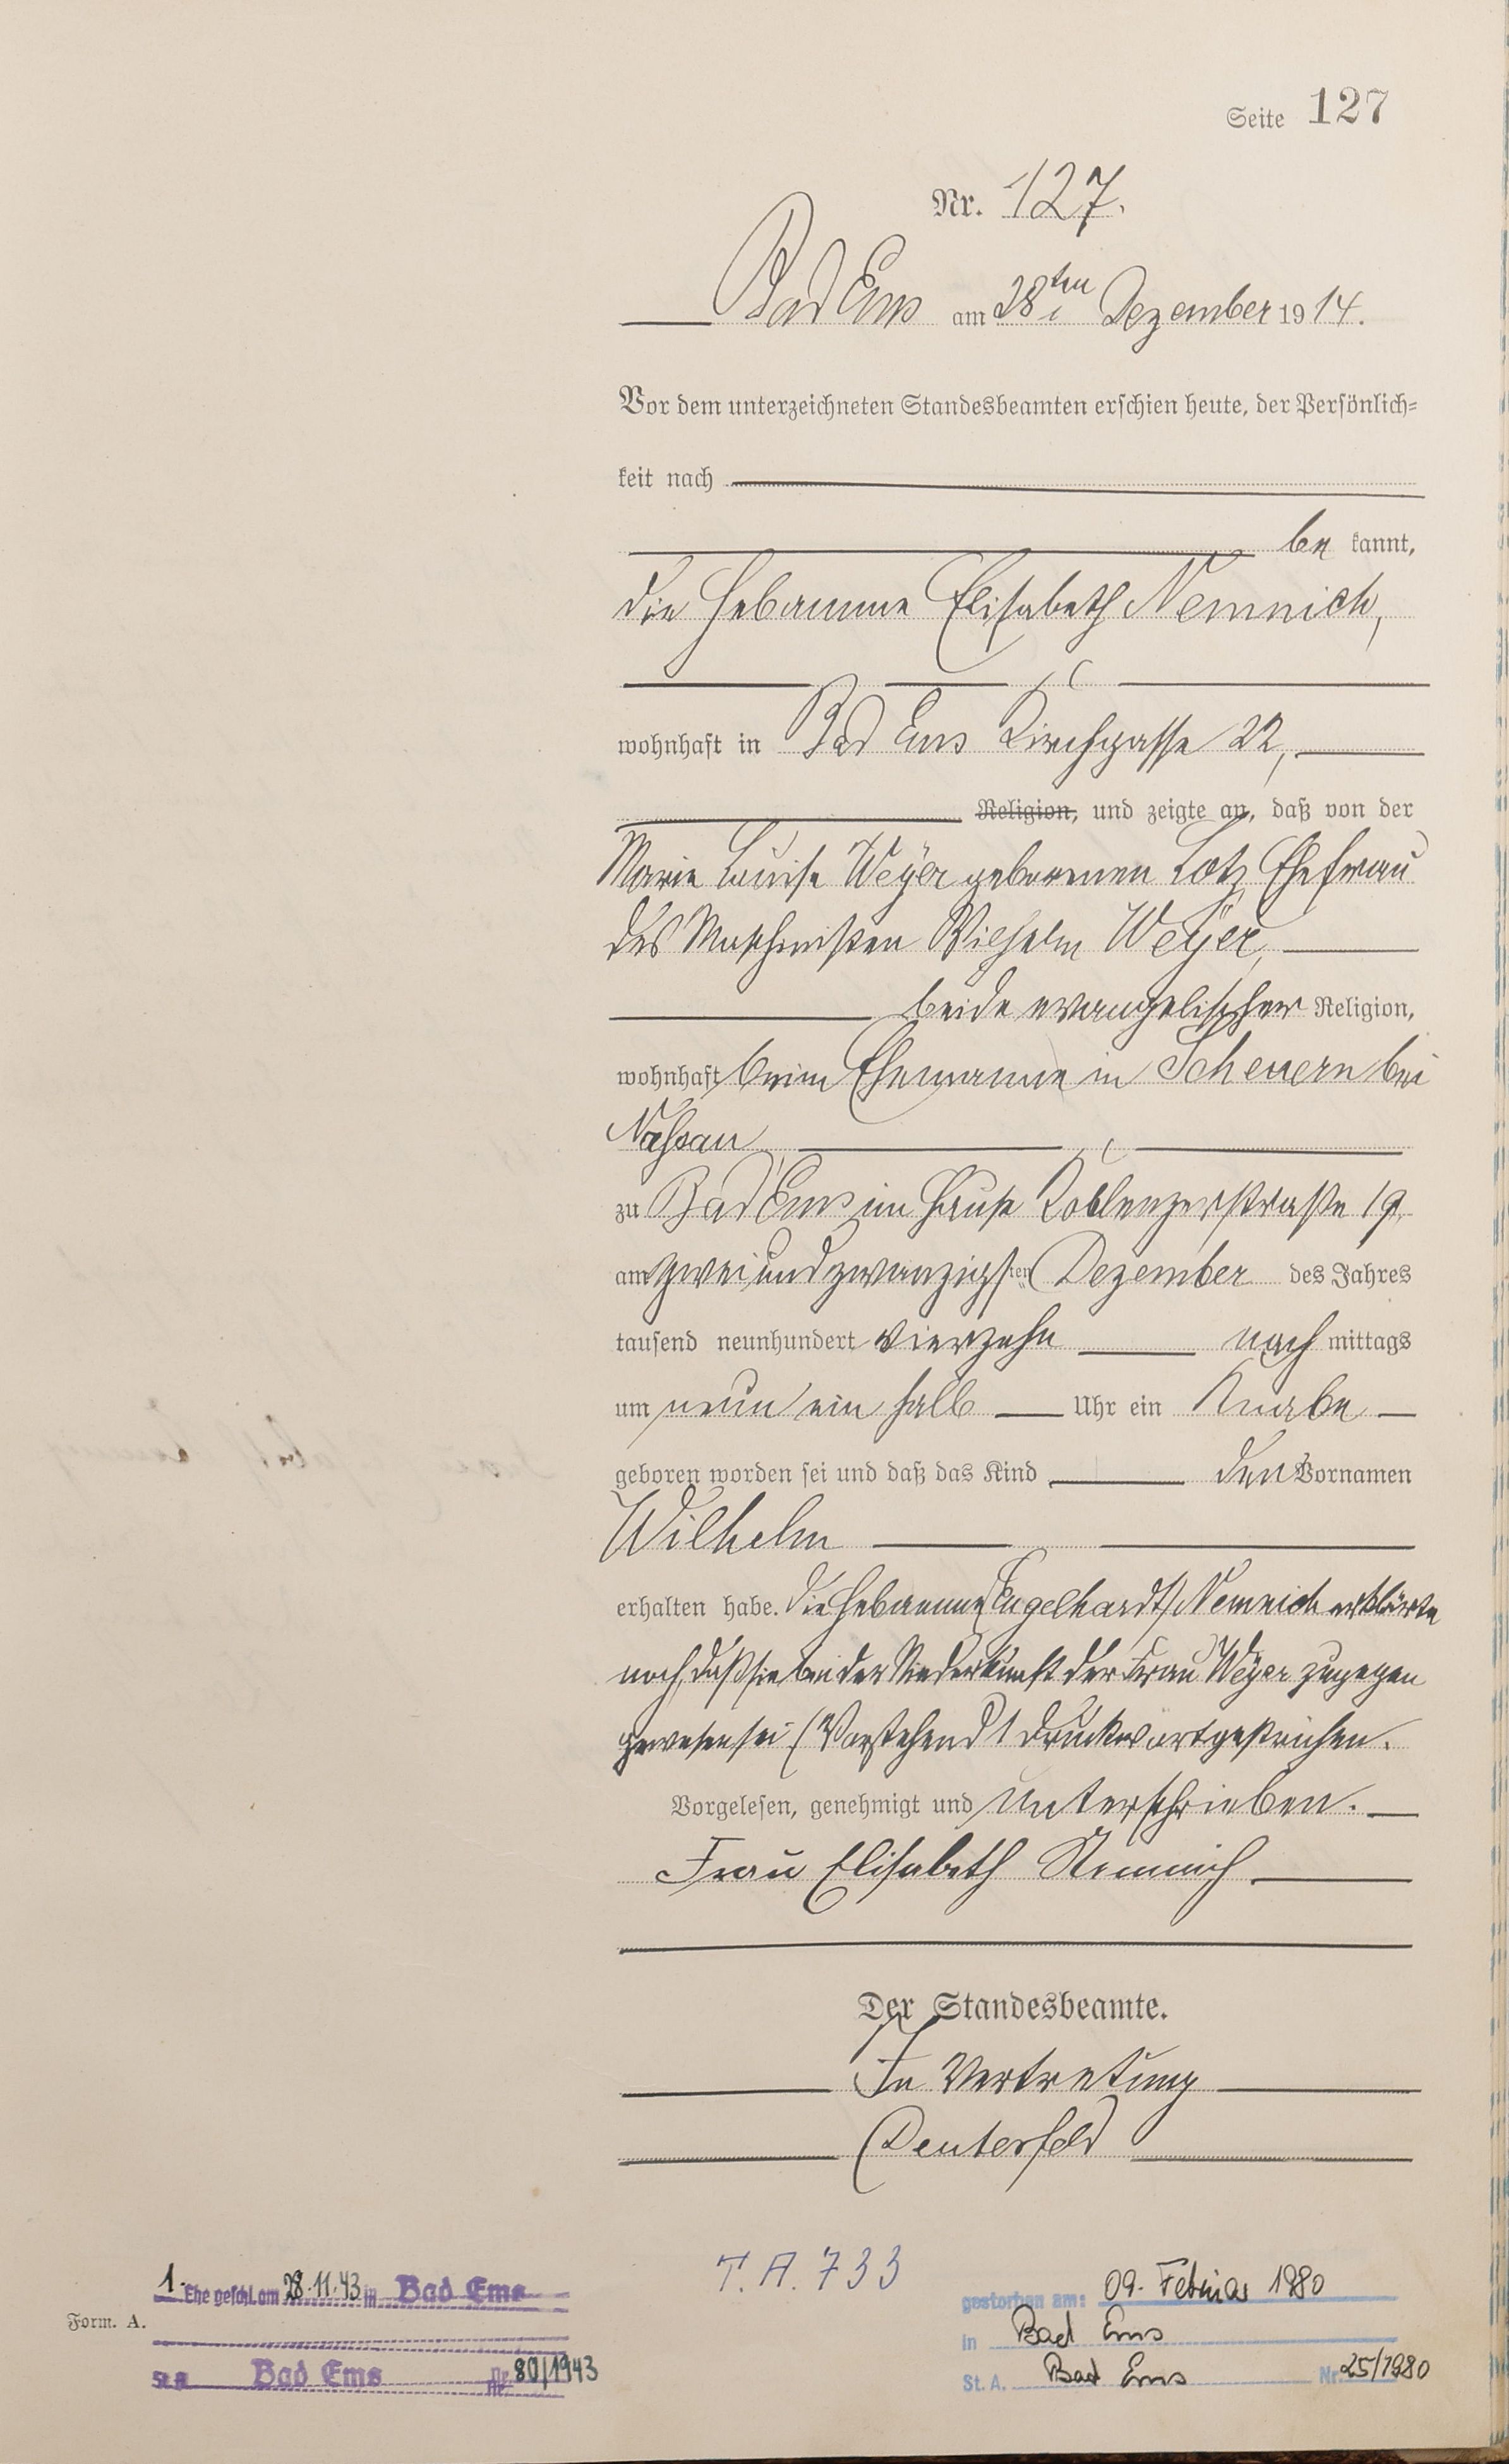 Seite 127
Nr. 127.
Bad Ems am 28ten Dezember 1914.
Vor dem unterzeichneten Standesbeamten erschien heute, der Persönlich=
keit nach
be kannt,
die Hebamme Elisabeth Nemnich,
wohnhaft in Bad Ems Kirchgasse 22,
Religion, und zeigte an, daß von der
Marie Luise Weÿer geborenen Lotz Ehefrau
des Maschinisten Wilhelm Weÿer,
beide evangelischer Religion,
wohnhaft beim Ehemanne in Scheuern bei
Nassau
zu Bad Ems im Hause Koblenzerstraße 19
am zweiundzwanzigsten Dezember des Jahres
tausend neunhundert vierzehn nach mittags
um neun ein halb Uhr ein Knabe
geboren worden sei und daß das Kind den Vornamen
Wilhelm
erhalten habe. Die Hebamme (Engelhardt) Nemnich erklärte
noch, daß sie bei der Niederkunft der Frau Weÿer zugegen
gewesen sei (Vorstehend 1 Druckwort gestrichen.
Vorgelesen, genehmigt und unterschrieben.
Frau Elisabeth Nemnich
Der Standesbeamte.
In Vertretung
Deuterfeld
T. A. 733
1. Ehe geschl. am 28.11.43 in Bad Ems
Form. A.
St A Bad Ems Nr. 80/1943
gestorben am: 09. Februar 1980
in Bad Ems
St. A. Bad Ems Nr. 25/1980